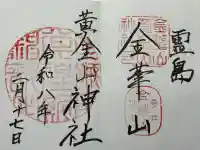 霊島
金華山
黄金山神社
令和八年
二月十七日